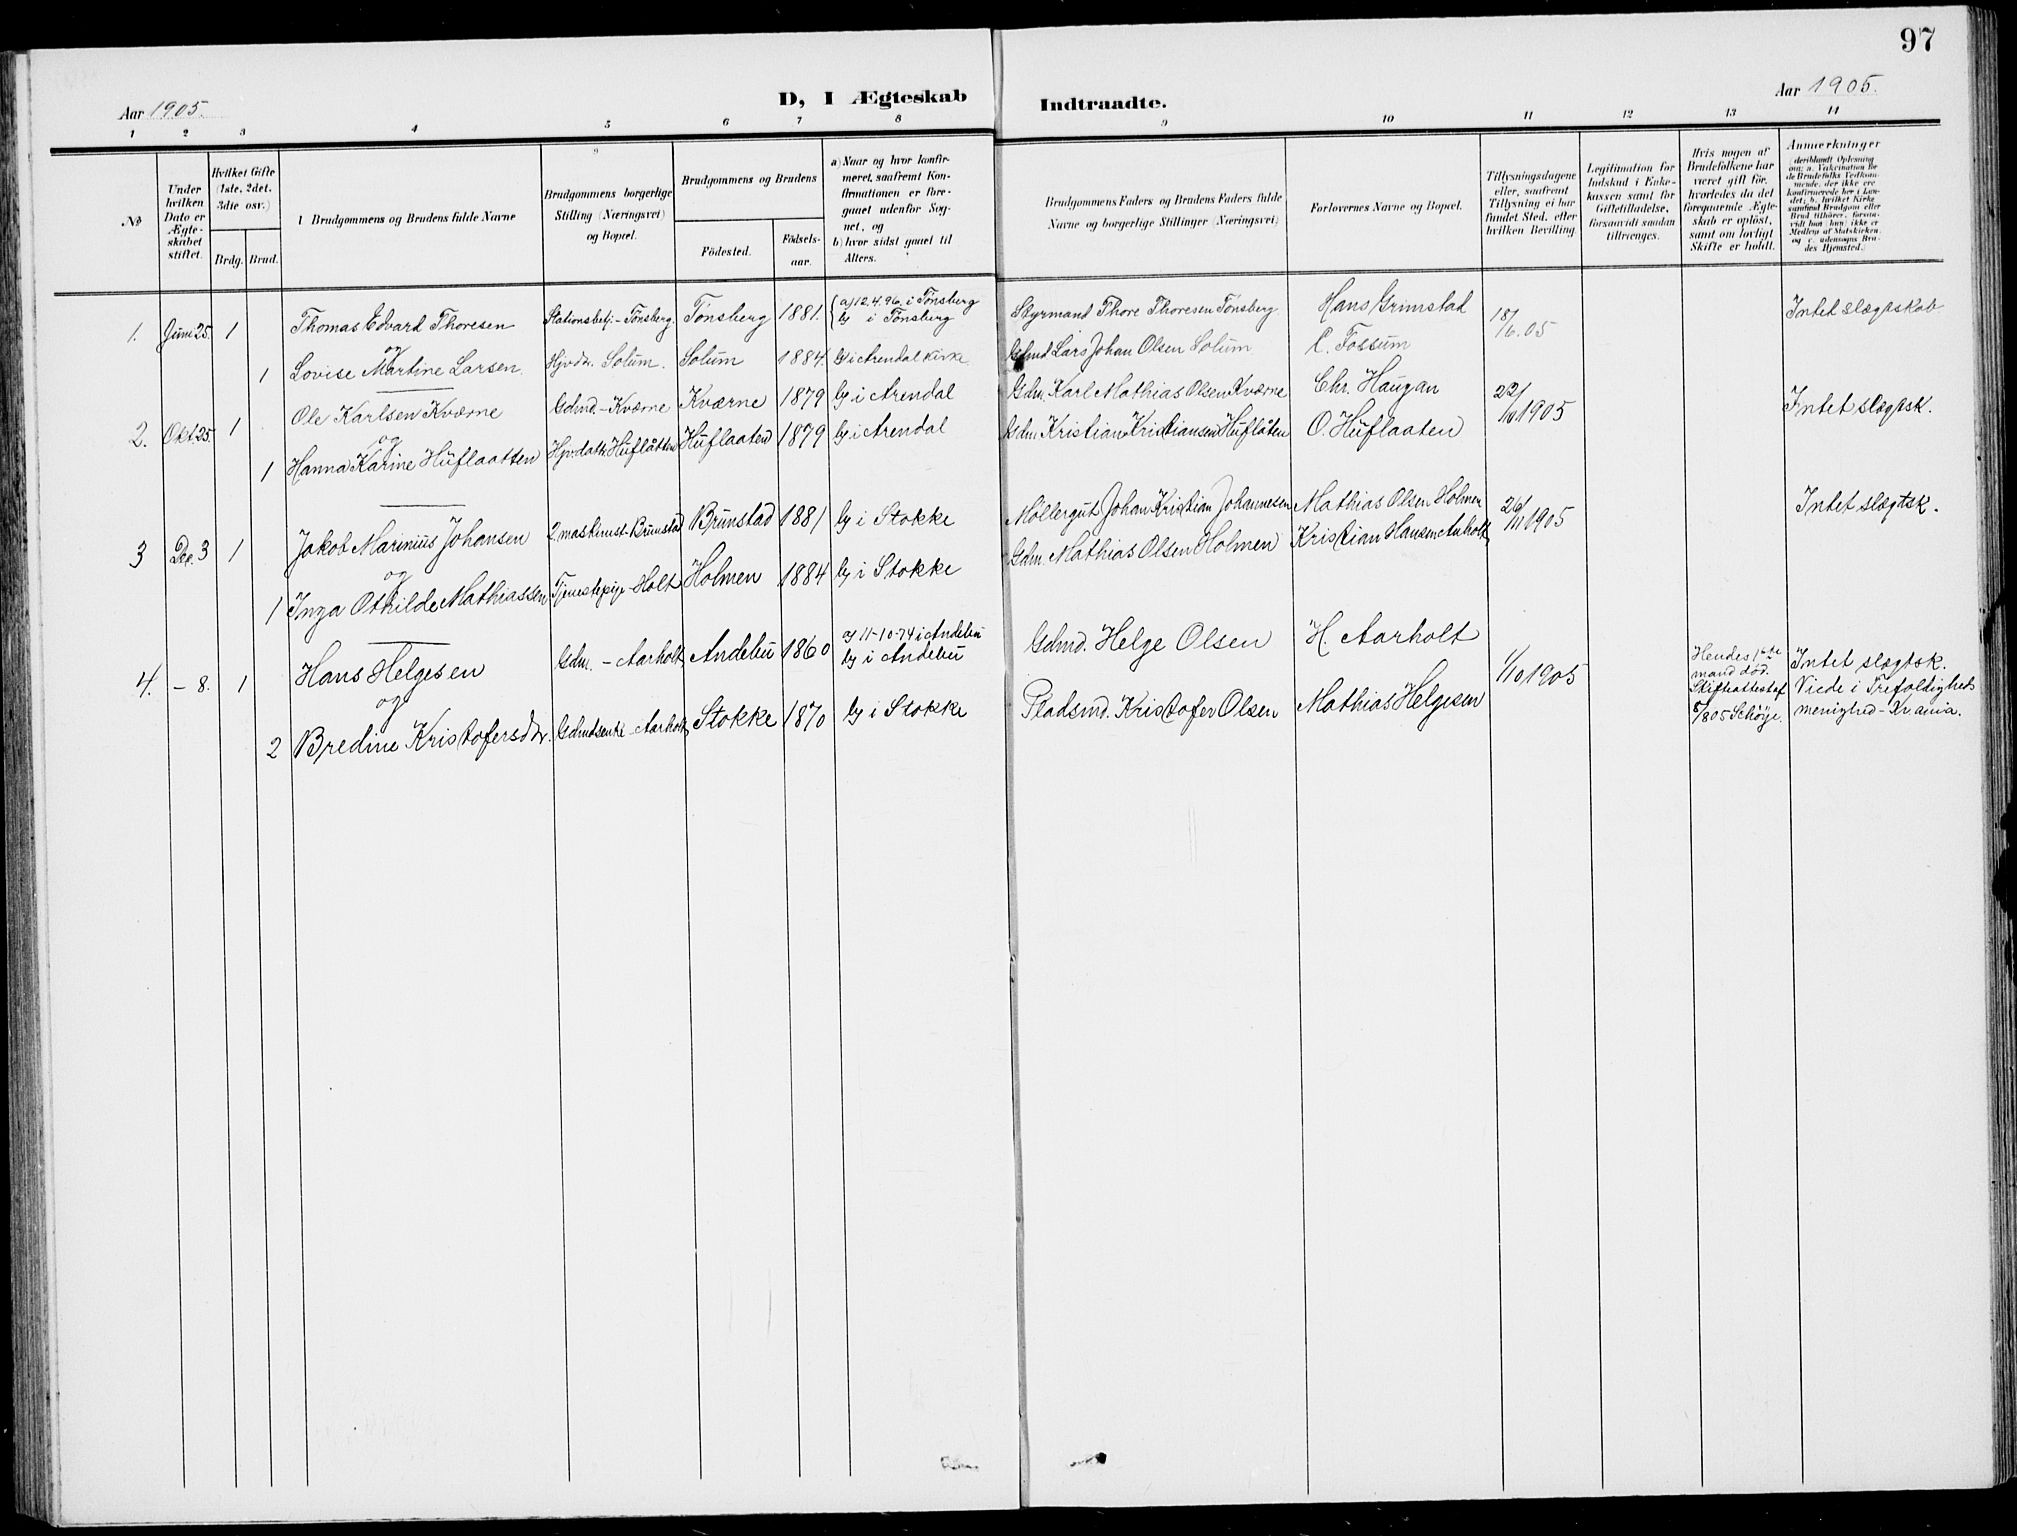 97
Aar 1905.
D, I Ægteskab
Indtraadte.
Aar 1905.
1 2 3 4 5 6 7 8 9 10 11 12 13 14
No
Under
hvilken
Dato er
Ægte-
skabet
stiftet.
Hvilket Gifte
(1ste, 2det,
3die osv.)
Brdg. Brud.
Brudgommens og Brudens fulde Navne
Brudgommens borgerlige
Stilling (Næringsvei)
og Bopæl.
Brudgommens og Brudens
Födested.
Födsels-
aar.
a) Naar og hvor konfir-
meret, saafremt Kon-
firmationen er fore-
gaaet udenfor Sog-
net, og
b) hvor sidst gaaet til
Alters.
Brudgommens Faders og Brudens Faders fulde
Navne og borgerlige Stillinger (Næringsvei)
Forlovernes Navne og Bopæl.
Tillysningsdagene
eller, saafremt
Tillysning ei har
fundet Sted, efter
hvilken Bevilling.
Legitimation for
Indskud i Enke-
kassen samt for
Giftetilladelse,
forsaavidt saadan
tiltrænges.
Hvis nogen af
Brudefolkene har
været gift før,
hvorledes da det
foregaaende Ægte-
skab er oplöst,
samt om lovligt
Skifte er holdt.
Anmærkninger
(deriblandt Oplysning
om: a. Vakcination for
de Brudefolks Vedkom-
mende, der ikke ere
konfirmerede her i Lan-
det; b. hvilket Kirke
samfund Brudgom eller
Brud tilhörer, forsaa-
vidt han hun ikke er
Medlem af Statskirken,
og c. udensogns Bru-
des Hjemsted.)
1. Juni 25. 1 Thomas Edvard Thoresen Stationsbetj. - Tønsberg. Tønsberg 1881. a) 12.4.96. i Tønsberg
b) i Tønsberg
Styrmand Thore Thoresen Tønsberg Hans Grimstad 18/6.05 Intet slægtskab
og
1 Lovise Martine Larsen. Hjvdtr. Solum. Solum 1884. b) i Arendal Kirke Gdmd Lars Johan Olsen Solum. C. Fossum
2. Okt. 25. 1 Ole Karlsen Kværne Gdmd. - Kværne Kværne 1879 b) i Arendal Gdm. Karl Mathias Olsen Kværne Chr. Haugan 22/10 1905 Intet slægtsk.
og
1 Hanna Karine Huflaatten Hjvdatr. Huflåtten Huflaaten 1879 b) i Arendal Gdm. Kristian Kristiansen Huflåten O. Huflaaten
3 Dec. 3 1 Jakob Marinius Johansen 2 maskinist - Brunstad Brunstad 1881 b) i Stokke Møllergut Johan Kristian Johannesen Mathias Olsen Holmen 26/11 1905 Intet slægtsk.
og
1 Inga Othilde Mathiassen Tjenestepige - Holt Holmen 1884 b) i Stokke Gdm. Mathias Olsen Holmen Kristian Hansen Aarholt
4. - 8. 1 Hans Helgesen Gdm. - Aarholt Andebu 1860 a) 11-10-74 i Andebu
b) i Andebu
Gdmd. Helge Olsen H. Aarholt 1/10 1905
Hendes 1ste
mand død.
Skifteattest af
5/8 05 Schöye.
Intet slægtsk.
Viede i Trefoldigheds
menighed - Kr.ania.
og
2 Bredine Kristofersdtr. Gdmdsenke - Aarholt Stokke 1870 b) i Stokke Pladsmd. Kristofer Olsen Mathias Helgesen